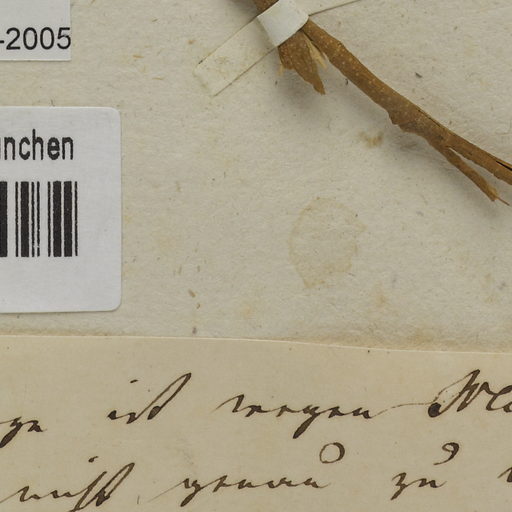 -2005
nchen
ist wegen
nicht genau zu